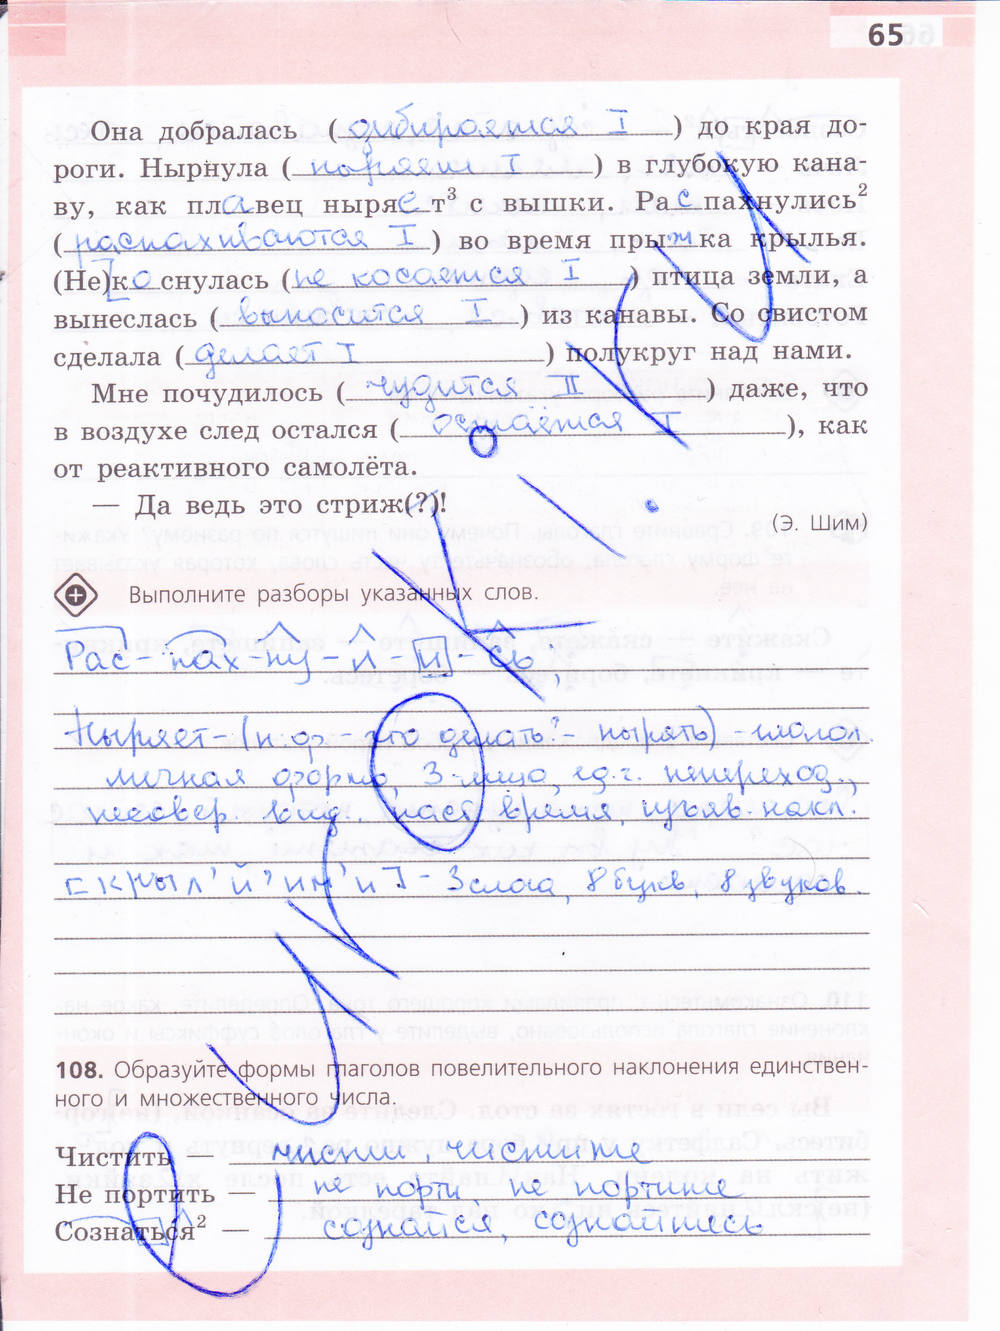 65
Она добралась (дибирается I) до края до-
роги. Нырнула (ныряет I) в глубокую кана-
ву, как плавец ныряет³ с вышки. Распахнулись²
(распахиваются I) во время прыжка крылья.
(Не)коснулась (не косается I) птица земли, а
вынеслась (выносится I) из канавы. Со свистом
сделала (делает I) полукруг над нами.
Мне почудилось (чудится II) даже, что
в воздухе след остался (остаётся I), как
от реактивного самолёта.
— Да ведь это стриж(?)!
(Э. Шим)
Выполните разборы указанных слов.
Рас-пах-ну-л-и-сь;
Ныряет-(н.ф.-что делать?-нырять)-глагол
личная форма, 3-лицо, ед.ч. непереход.,
несовер. вид., наст время, изъяв. накл.
[крыл'й'ин'и]-3 слога, 8 букв, 8 звуков.
108. Образуйте формы глаголов повелительного наклонения единствен-
ного и множественного числа.
Чистить — чисти чистите
Не портить — не порти не портите
Сознаться² — сознайся, сознайтесь